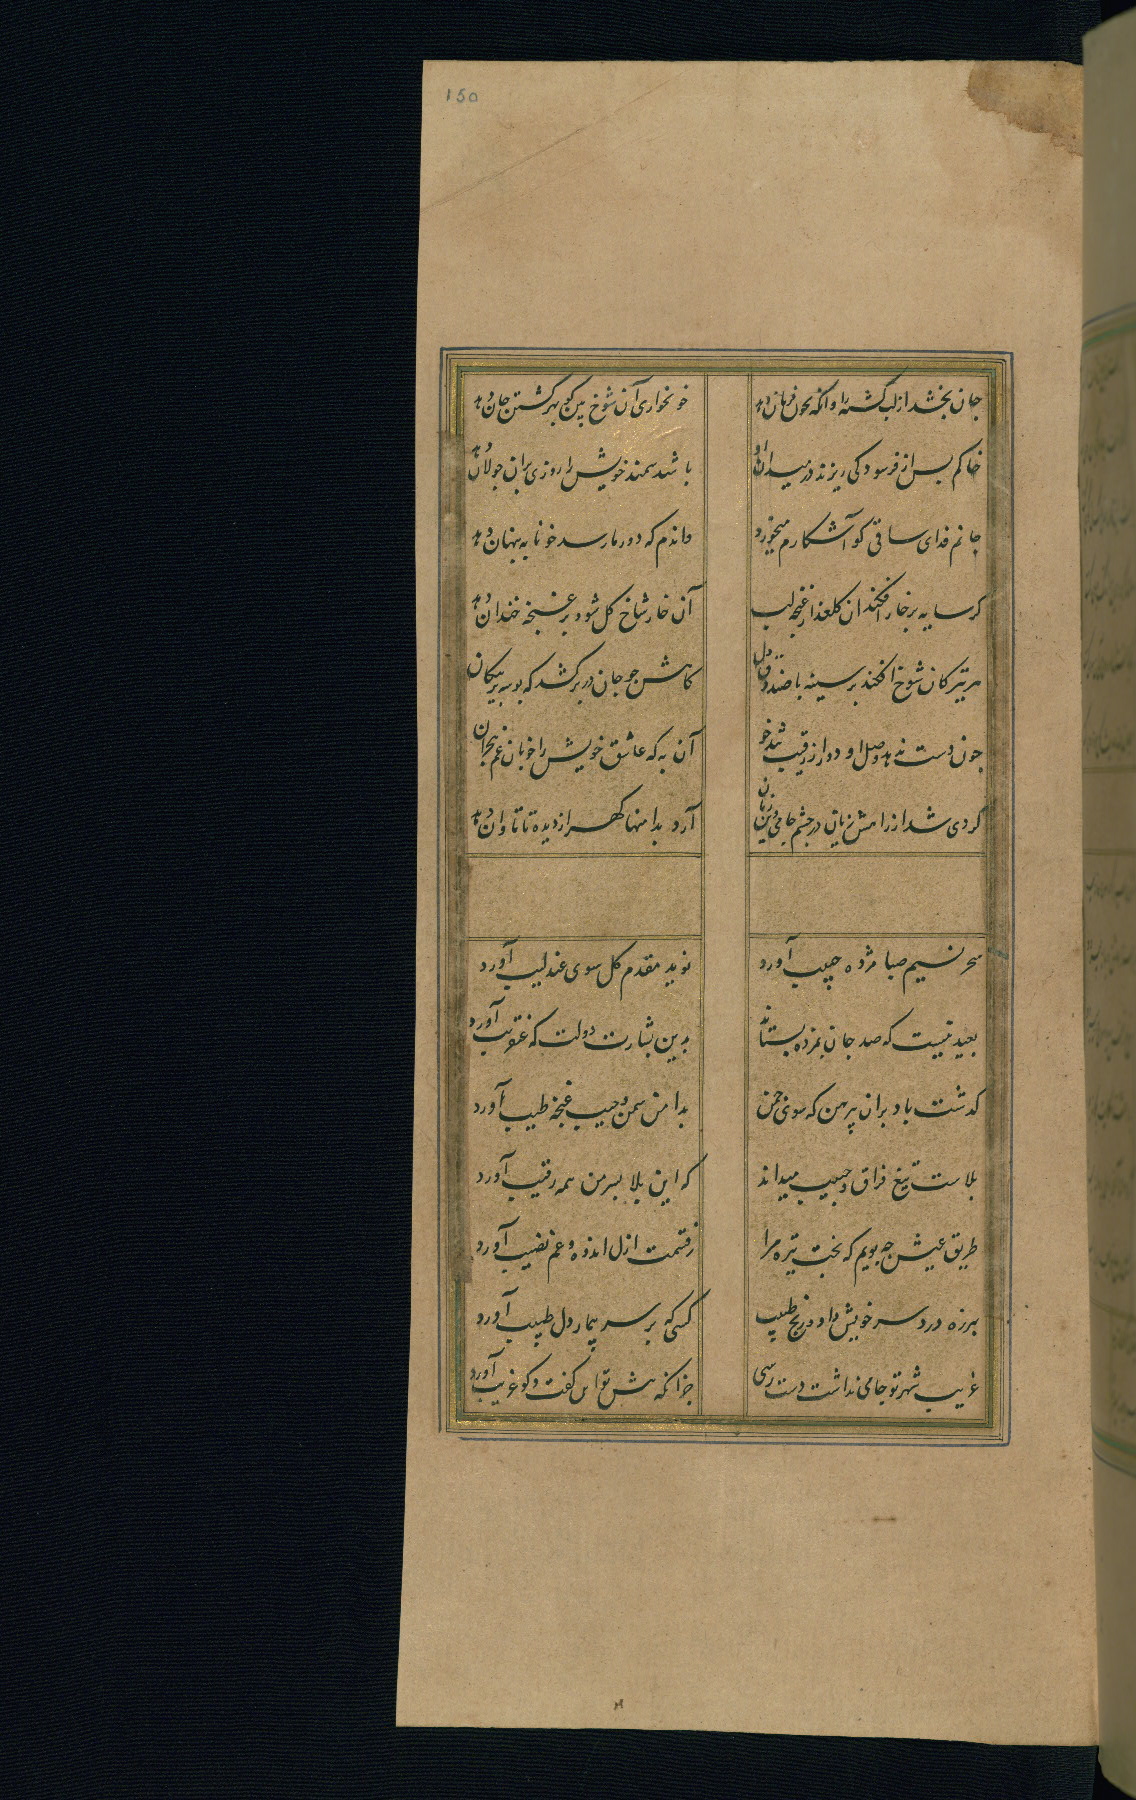 150
جان بخشد از لب کشته را وانکه بخون فرمان دهد خونخواری آن شوخ بین کو بهر کشتن جان دهد
خاکم پس از فرسودکی ریزند در میدان او باشد سمند خویش را روزی بران جولان دهد
جانم فدای ساقی کو آشکارم میخورد واندم که دور ما رسد خونابه پنهان دهد
کر سایه بر خار افکند ان کلعذار غنچه لب آن خار شاخ کل شود بر غنچه خندان دهد
هر تیر کان شوخ افکند بر سینه با صد ذوق دل کاهش چو جان در بر کشد که بوسه بر پیکان
چون دست ندهد وصل او دور از رقیب تندخو آن به که عاشق خویش را خو با غم هجران
کردی شد از راهش زیان در چشم جامی وین زمان آرد بدامنها کهر از دیده تا تاوان دهد
سحر نسیم صبا مژده حبیب آورد نوید مقدم کل سوی عندلیب آورد
بعید نیست که صد جان بمژده بستاند بدین بشارت دولت که عنقریب آورد
کذشت باد بران پیرهن که سوی چمن بدامن سمن و جیب غنچه طیب آورد
بلاست تیغ فراق و حبیب میداند که این بلا بسر من همه رقیب آورد
طریق عیش چه پویم که بخت تیره مرا ز قسمت ازل اندوه و غم نصیب آورد
بهرزه درد سر خویش داد و رنج طبیب کسی که بر سر بیمار دل طبیب آورد
غریب شهر تو جامی نداشت دست رسی جز انکه پیش تو این کفت وکو غریب آورد